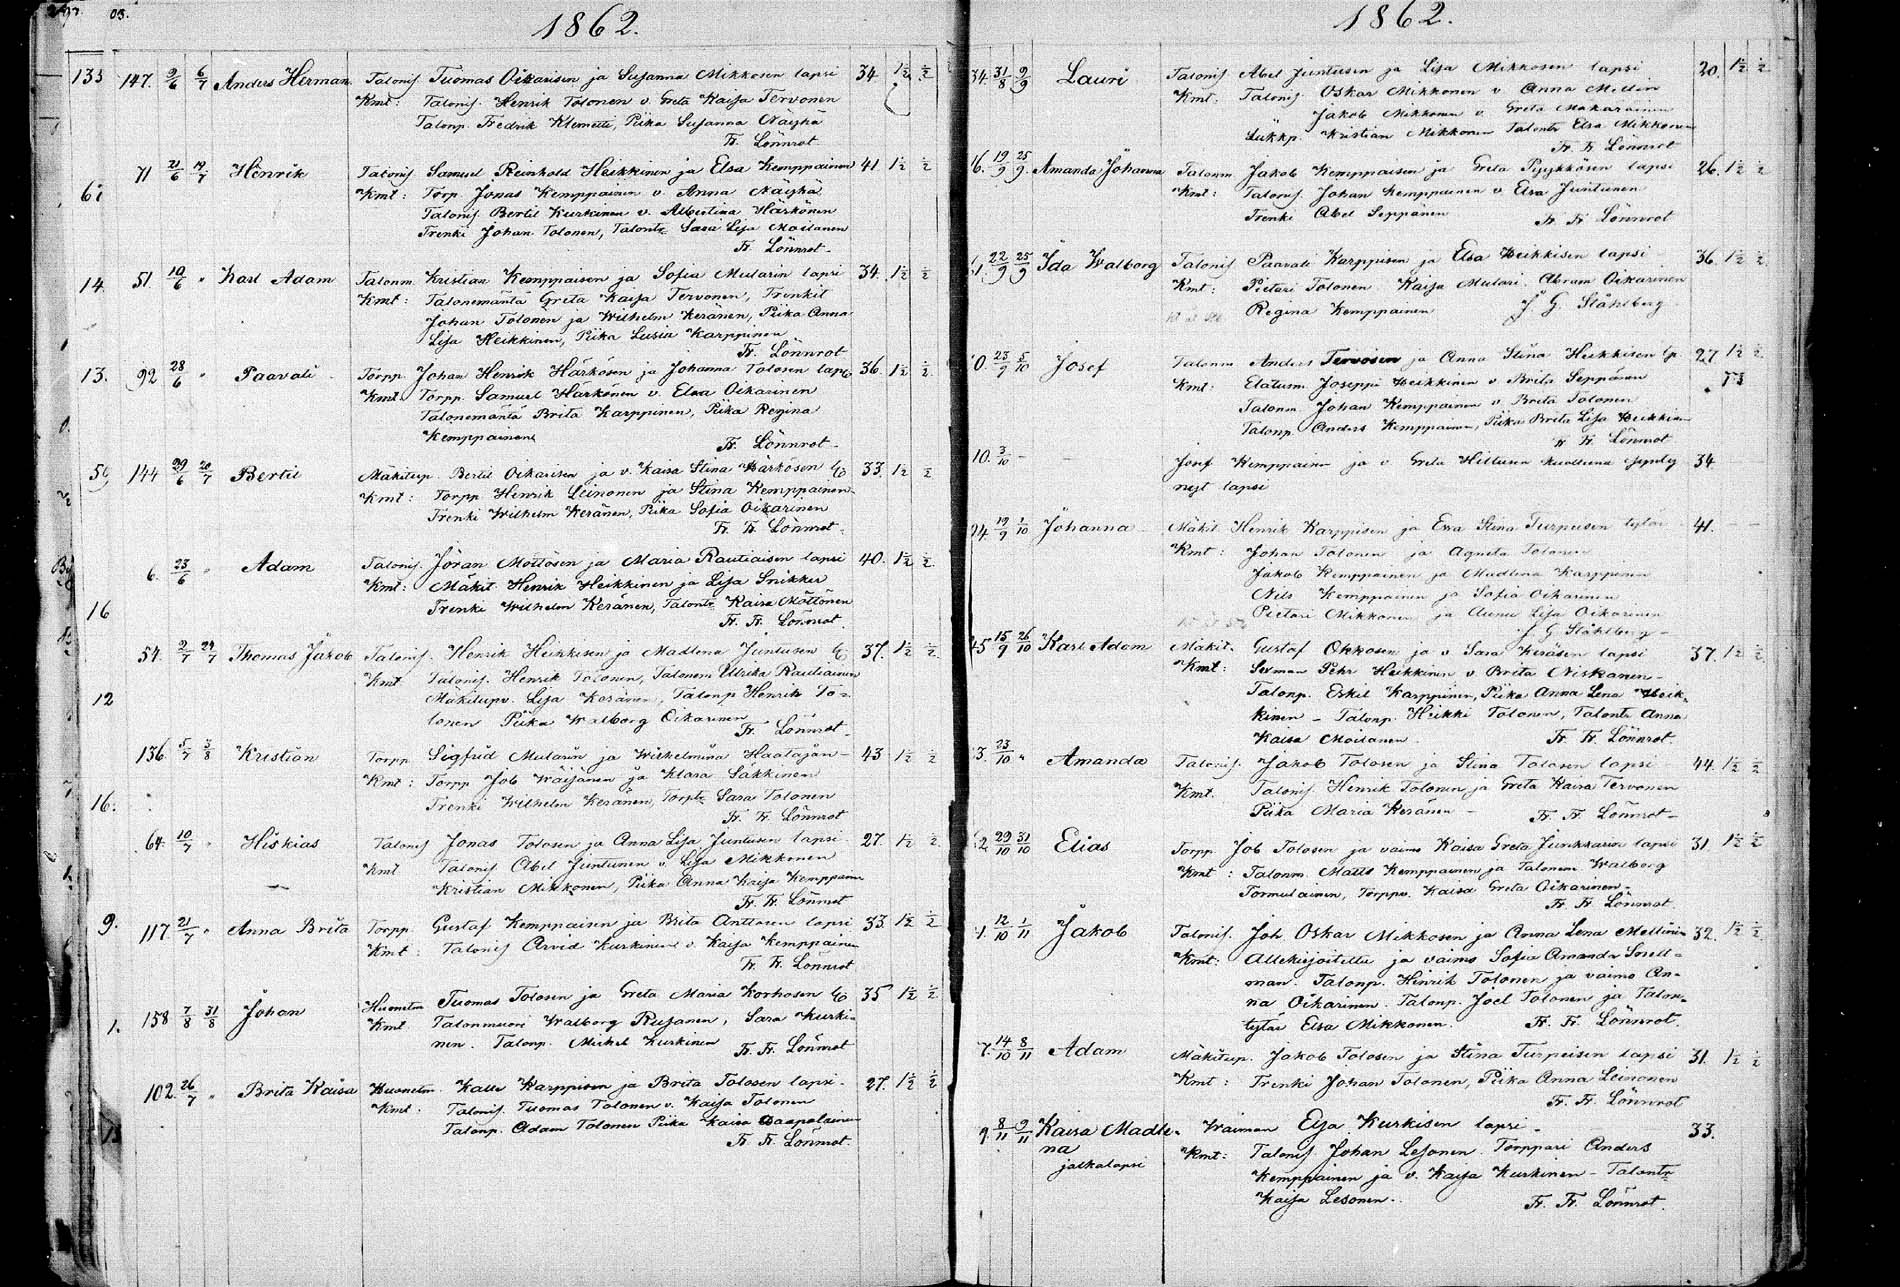 1862.
133 147. 9/6 6/7 Anders Herman Talonis. Tuomas Oikarisen ja Susanna Mikkosen lapsi 34. 1½ ½
Kmt: Talonis. Henrik Tolonen v. Greta Kaisa Tervonen
Talonp. Fredrik Klemetti, Piika Susanna Näyhä
Fr. Lönnrot
71 21/6 19/7 Henrik Talonis Samuel Reinhold Heikkinen ja Elsa Kemppainen 41 1½ ½
Kmt: Torp Jonas Kemppainen v. Anna Näyhä
Talonis Bertil Kurkinen v. Albertina Härkönen
Trenki Johan Tolonen, Talontr Sara Lisa Moilanen
Fr. Lönnrot
14. 51. 10/6 " Karl Adam Talonm. Kristian Kemppaisen ja Sofia Mularin lapsi 34. 1½ ½
Kmt: Talonemäntä Greta Kaisa Tervonen, Trenkit
Johan Tolonen ja Wilhelm Keränen, Piika Anna
Lisa Heikkinen, Piika Lusia Karppinen
Fr. Lönnrot
13. 92 28/6 " Paavali Torpp. Johan Henrik Härkösen ja Johanna Tolosen lapsi 36. 1½ ½
Kmt. Torpp. Samuel Härkönen v. Elsa Oikarinen
Talonemäntä Brita Karppinen, Piika Regina
Kemppainen
Fr. Lönnrot
59 144 29/6 20/7 Bertil Mäkitup. Bertil Oikarisen ja v. Kaisa Stina Härkösen 33. 1½ ½
Kmt: Torpp Henrik Leinonen ja Stina Kemppainen
Trenki Wilhelm Keränen, Piika Sofia Oikarinen
Fr. Fr. Lönnrot
6. 23/6 " Adam Talonis. Jöran Möttösen ja Maria Rautiaisen lapsi 40. 1½ ½
Kmt: Mäkit. Henrik Heikkinen ja Lisa Snikker
16 Trenki Wilhelm Keränen, Talontr Kaisa Möttönen
Fr. Fr. Lönnrot
54. 2/7 24/7 Thomas Jakob Talonis. Henrik Heikkisen ja Madlena Juntusen 37. 1½ ½
Kmt. Talonis. Henrik Tolonen, Talonem Ulrika Rautiainen
12 Mäkitupv. Lisa Keränen, Talonp Henrik To=
lonen Piika Walborg Oikarinen
Fr. Lönnrot
136. 5/7 3/8 Kristian Torpp Sigfrid Mularin ja Wilhelmina Haatajan 43 1½ ½
Kmt: Torpp Job Wäijänen ja Klara Säkkinen
16. Trenki Wilhelm Keränen, Torptr Sara Tolonen
Fr. Fr. Lönnrot
64. 10/7 " Hiskias Talonis Jonas Tolosen ja Anna Lisa Juntusen lapsi 27. 1½ ½
Kmt Talonis Abel Juntunen v. Lisa Mikkonen
Kristian Mikkonen, Piika Anna Kaisa Kemppainen
Fr. Fr. Lönnrot
9. 117 21/7 " Anna Brita Torpp Gustaf Kemppainen ja Brita Anttosen lapsi 33. 1½ ½
Kmt: Talonis Arvid Kurkinen v. Kaisa Kemppainen
Fr. Fr. Lönnrot
1. 158 7/8 31/8 Johan Huonetm Tuomas Tolosen ja Greta Maria Korhosen 35 1½ ½
Kmt Talonmuori Walborg Rusanen, Sara Kurki=
nen. Talonp. Mickel Kurkinen
Fr. Fr. Lönnrot
102. 26/7 " Brita Kaisa Huonetm. Kalle Karppisen ja Brita Tolosen lapsi 27. 1½ ½
Kmt: Talonis. Tuomas Tolonen v. Kaisa Tolonen
13 Talonp. Adam Tolonen Piika Kaisa
Fr. Fr. Lönnrot
1862.
34. 31/8 9/9 Lauri Talonis Abel Juntusen ja Lisa Mikkosen lapsi 20. 1½ ½
Kmt. Talonis. Oskar Mikkonen v Anna Mellin
Jakob Mikkonen v. Greta Makarainen
Kristian Mikkonen Talontr Elsa Mikkonen
Fr. Fr. Lönnrot
16. 19/9 25/9 Amanda Johanna Talonm Jakob Kemppaisen ja Greta Pyykkösen lapsi 26. 1½ ½
Kmt: Talonis. Johan Kemppainen v Elsa Juntunen
Trenki Abel Seppänen
Fr. Fr. Lönnrot
22/9 25/9 Ida Walborg Talonis Paavali Karppisen ja Elsa Heikkisen lapsi 36. 1½ ½
Kmt: Pietari Tolonen Kaisa Mulari. Abram Oikarinen
Regina Kemppainen J. G. Ståhlberg
23/9 5/10 Josef Talonm Anders Tervosen ja Anna Stina Heikkisen 27 1½ ½
Kmt: Elatusm. Joseppi Heikkinen v Brita Seppänen
Talonm. Johan Kemppainen v Brita Tolonen
Talonp. Anders Kemppainen, Piika Brita Lisa Heikkinen
Fr. Fr. Lönnrot
10. 3/10 Josef Kemppainen ja v Greta Hiltusen kuolluna syndy 34
nyt lapsi
24 19/9 1/10 Johanna Mäkit Henrik Karppisen ja Ewa Stina Turpeisen tytär 41.
Kmt: Johan Tolonen ja Agneta Tolonen
Jakob Kemppainen ja Madlena Karppinen
Nils Kemppainen ja Sofia Oikarinen
Pietari Mikkonen ja Anna Lisa Oikarinen
J. G. Ståhlberg
45 15/9 26/10 Karl Adam Mäkit. Gustaf Okkosen ja v Sara Keräsen lapsi 37. 1½ ½
Kmt: Serman Pehr Heikkinen v Brita Niskanen
Talonp. Eskil Karppinen, Piika Anna Lena Heik=
kinen - Talonp. Heikki Tolonen, Talontr Anna
Kaisa Moilanen. Fr. Fr. Lönnrot.
3. 23/10 " Amanda Talonis. Jakob Tolosen ja Stina Tolosen lapsi 44. 1½ ½
Kmt. Talonis Henrik Tolonen ja Greta Kaisa Tervonen
Piika Maria Keränen - Fr. Fr. Lönnrot
2 29/10 31/10 Elias Torpp Job Tolosen ja vaimo Kaisa Greta Junkkarin lapsi 31 1½ ½
Kmt: Talonm. Matts Kemppainen ja Talonem Walborg
Tormulainen, Torppv. Kaisa Greta Oikarinen
Fr. Fr. Lönnrot
1. 12/10 1/11 Jakob Talonis. Joh Oskar Mikkosen ja Anna Lena Mellini 32. 1½ ½
Kmt: Allekirjoitettu ja vaimo Sofia Amanda Snell=
man. Talonp. Hinrik Tolonen ja vaimo An=
na Oikarinen. Talonp. Joel Tolonen ja Talon=
tytär Elsa Mikkonen. Fr. Fr. Lönnrot.
7. 14/10 8/11 Adam Mäkitup. Jakob Tolosen ja Stina Turpeisen lapsi 31. 1½ ½
Kmt: Trenki Johan Tolonen, Piika Anna Leinonen
Fr. Fr. Lönnrot
9. 8/11 9/11 Kaisa Madle= Waiman Eija Kurkisen lapsi 33.
na Kmt: Talonis Johan Lesonen. Torppari Anders
jalkalapsi Kemppainen ja v. Kaisa Kurkinen - Talontr
Kaisa Lesonen. Fr. Fr. Lönnrot.